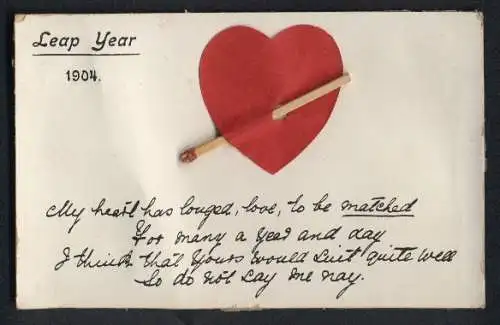 Leap Year
1904.
My heart has longed, love, to be matched
For many a year and day
I think that yours would suit quite well
So do not say me nay.